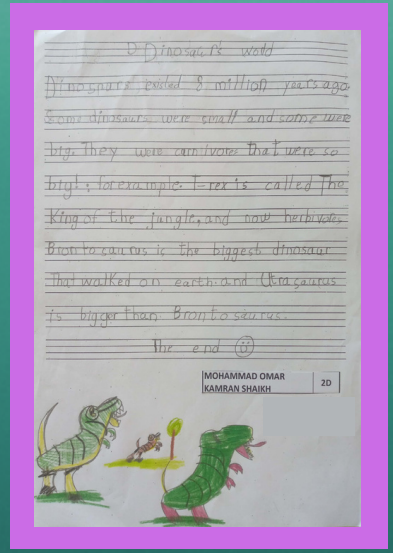 D Dinosaur's world
Dinosaurs existed 8 million years ago.
Some dinosaurs were small and some were
big. They were carnivores that were so
big! : for example. T-rex is called The
King of the jungle, and now herbivores
Brontosaurus is the biggest dinosaur
That walked on earth. and Utrasaurus
is bigger than Brontosaurus.
The end
MOHAMMAD OMAR
KAMRAN SHAIKH
2D